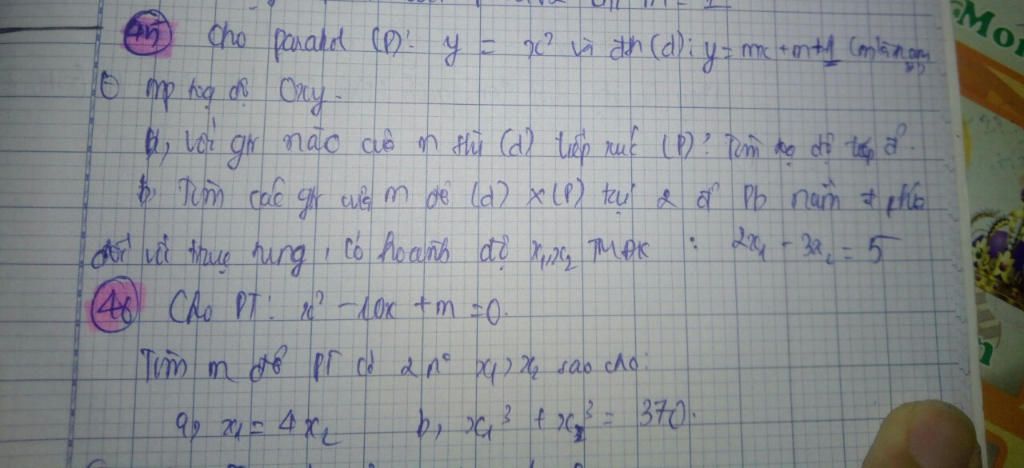 45 Cho parabol (P): y = x² và đth (d): y = mx + m+1 (m là
mp toạ độ Oxy.
a, Với gtr nào của m thì (d) tiếp xúc (P)? Tìm toạ độ tiếp đ'.
b, Tìm các gtr của m để (d) x (P) tại 2 đ' Pb nằm 2 phía
đối với trục tung, có hoành độ x₁,x₂ TMĐK : 2x₁ - 3x₂ = 5
46 Cho PT: x² - 10x + m = 0.
Tìm m để PT có 2 n° x₁, x₂ sao cho:
a, x₁ = 4x₂ b, x₁³ + x₂³ = 370.